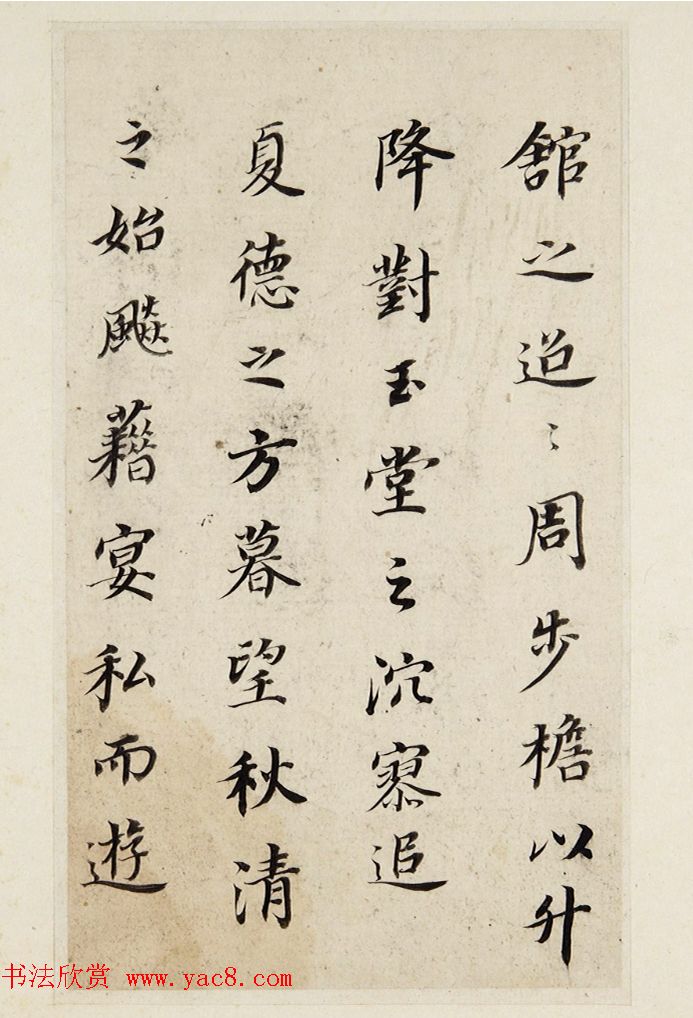 舘之迢〻周步檐以升
降對玉堂之泬寥追
夏德之方暮望秋清
之始飈藉宴私而遊
书法欣赏 www.yac8.com